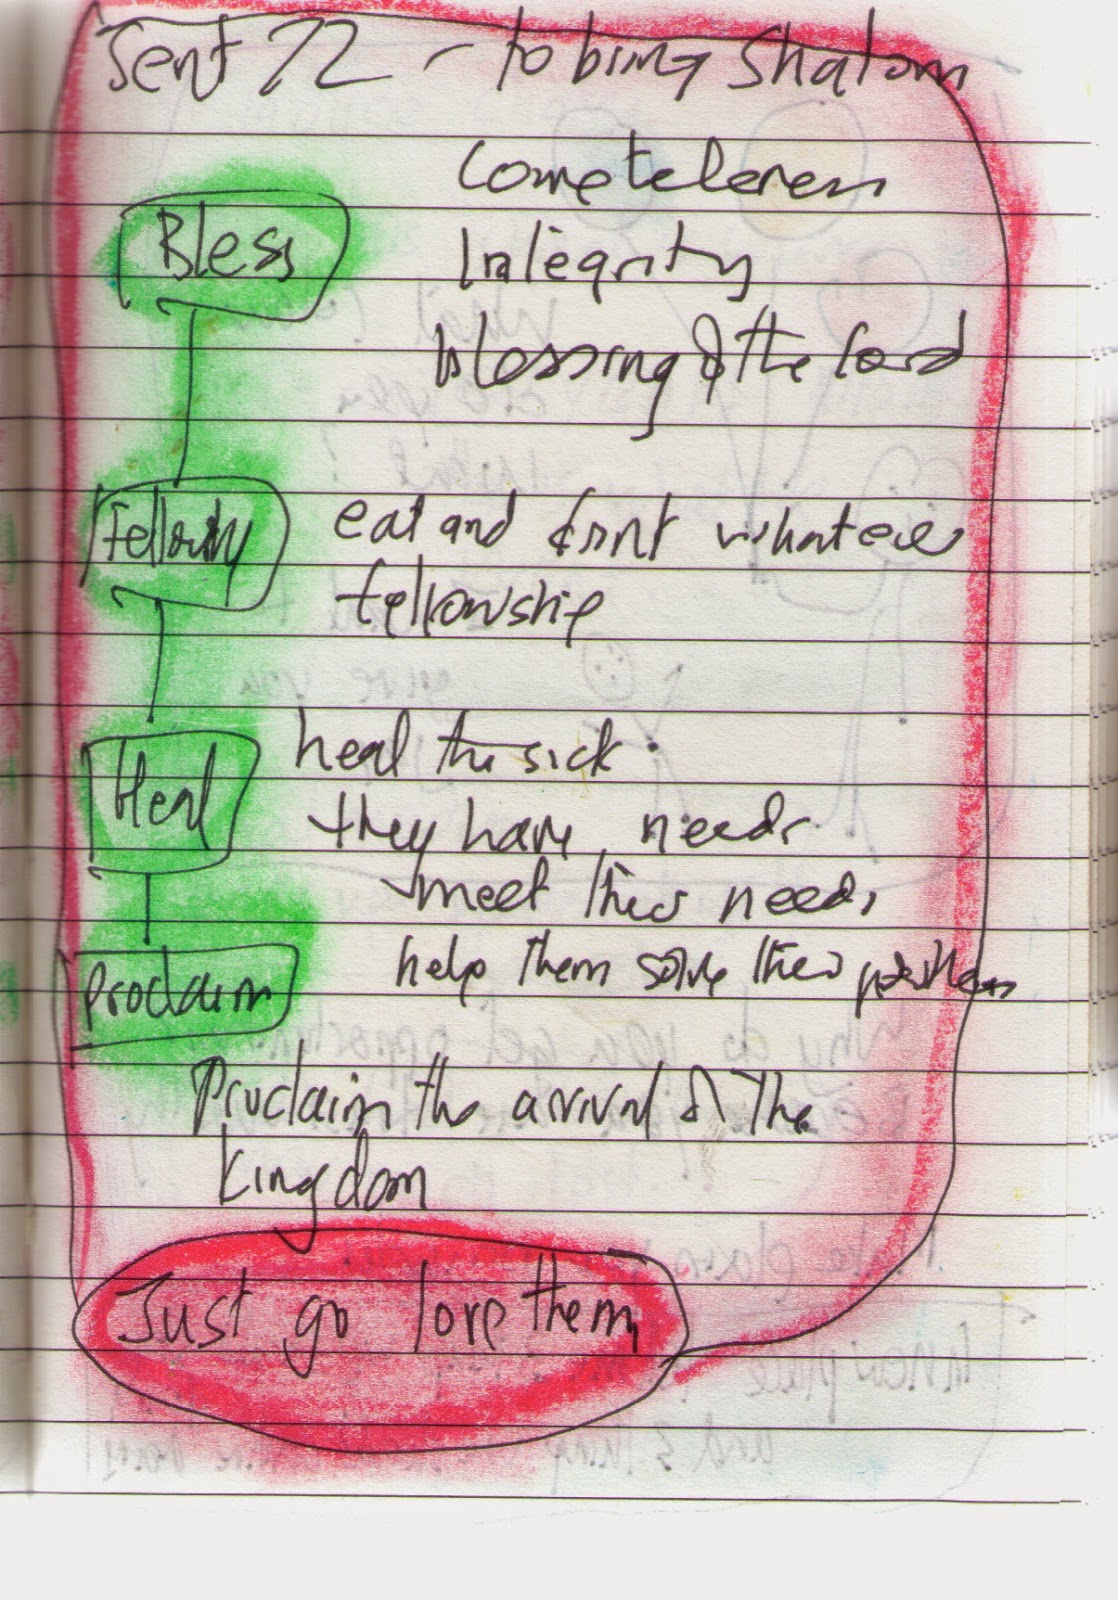 Sent 72 - to bring Shalom
Cometeleness
Bless
Integrity
blessing of the Lord
Fellowship
eat and drink whatever
fellowship
Heal
heal the sick
they have needs
meet their needs
help them solve their problems
Proclaim
Proclaim the arrival of the
Kingdom
Just go love them